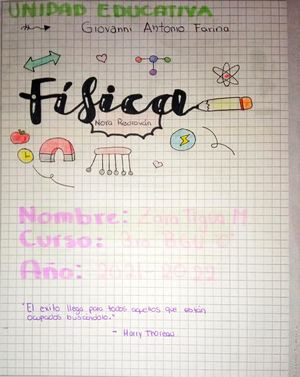 UNIDAD EDUCATIVA
Giovanni Antonio Farina
Física
Nora Redrován
Nombre: Zara Tigua M.
Curso: 3ro BGU "C"
Año: 2021-2022
"El exito llega para todos aquellos que están
ocupados buscándolo."
- Harry Thoreau